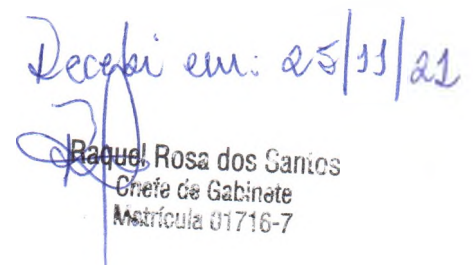 Recebi em: 25/11/21
Raquel Rosa dos Santos
Chefe de Gabinete
Matrícula 01716-7